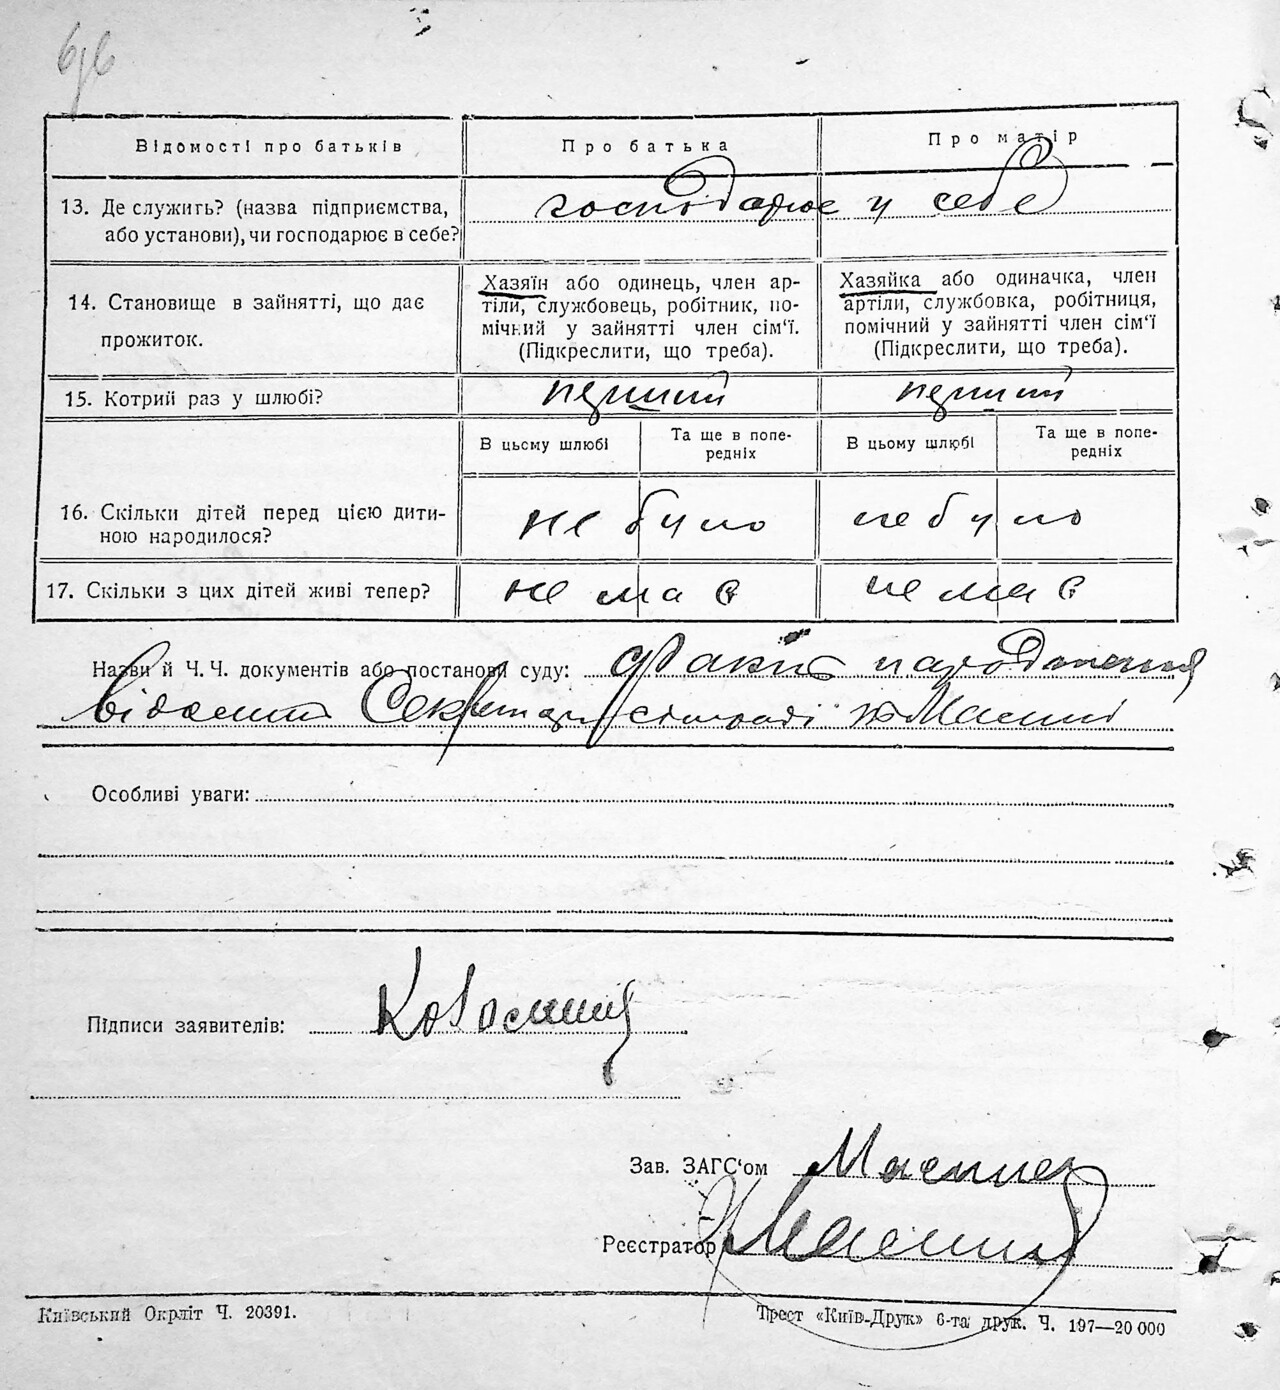 Відомості про батьків
Про батька
Про матір
13. Де служить? (назва підприємства,
або установи), чи господарює в себе?
господарює у себе
14. Становище в зайнятті, що дає
прожиток.
Хазяїн або одинець, член ар-
тіли, службовець, робітник, по-
мічний у зайнятті член сім'ї.
(Підкреслити, що треба).
Хазяйка або одиначка, член
артіли, службовка, робітниця,
помічний у зайнятті член сім'ї
(Підкреслити, що треба).
15. Котрий раз у шлюбі?
перший
перший
В цьому шлюбі
Та ще в попе-
редніх
В цьому шлюбі
Та ще в попе-
редніх
16. Скільки дітей перед цією дити-
ною народилося?
не було
не було
17. Скільки з цих дітей живі тепер?
не має
не має
Назви й Ч. Ч. документів або постанови суду: факт народження
відомий
Особливі уваги:
Підписи заявителів:
Зав. ЗАГС'ом
Реєстратор
Київський Окрліт Ч. 20391.
Трест «Київ-Друк» 6-та друк. Ч. 197—20 000